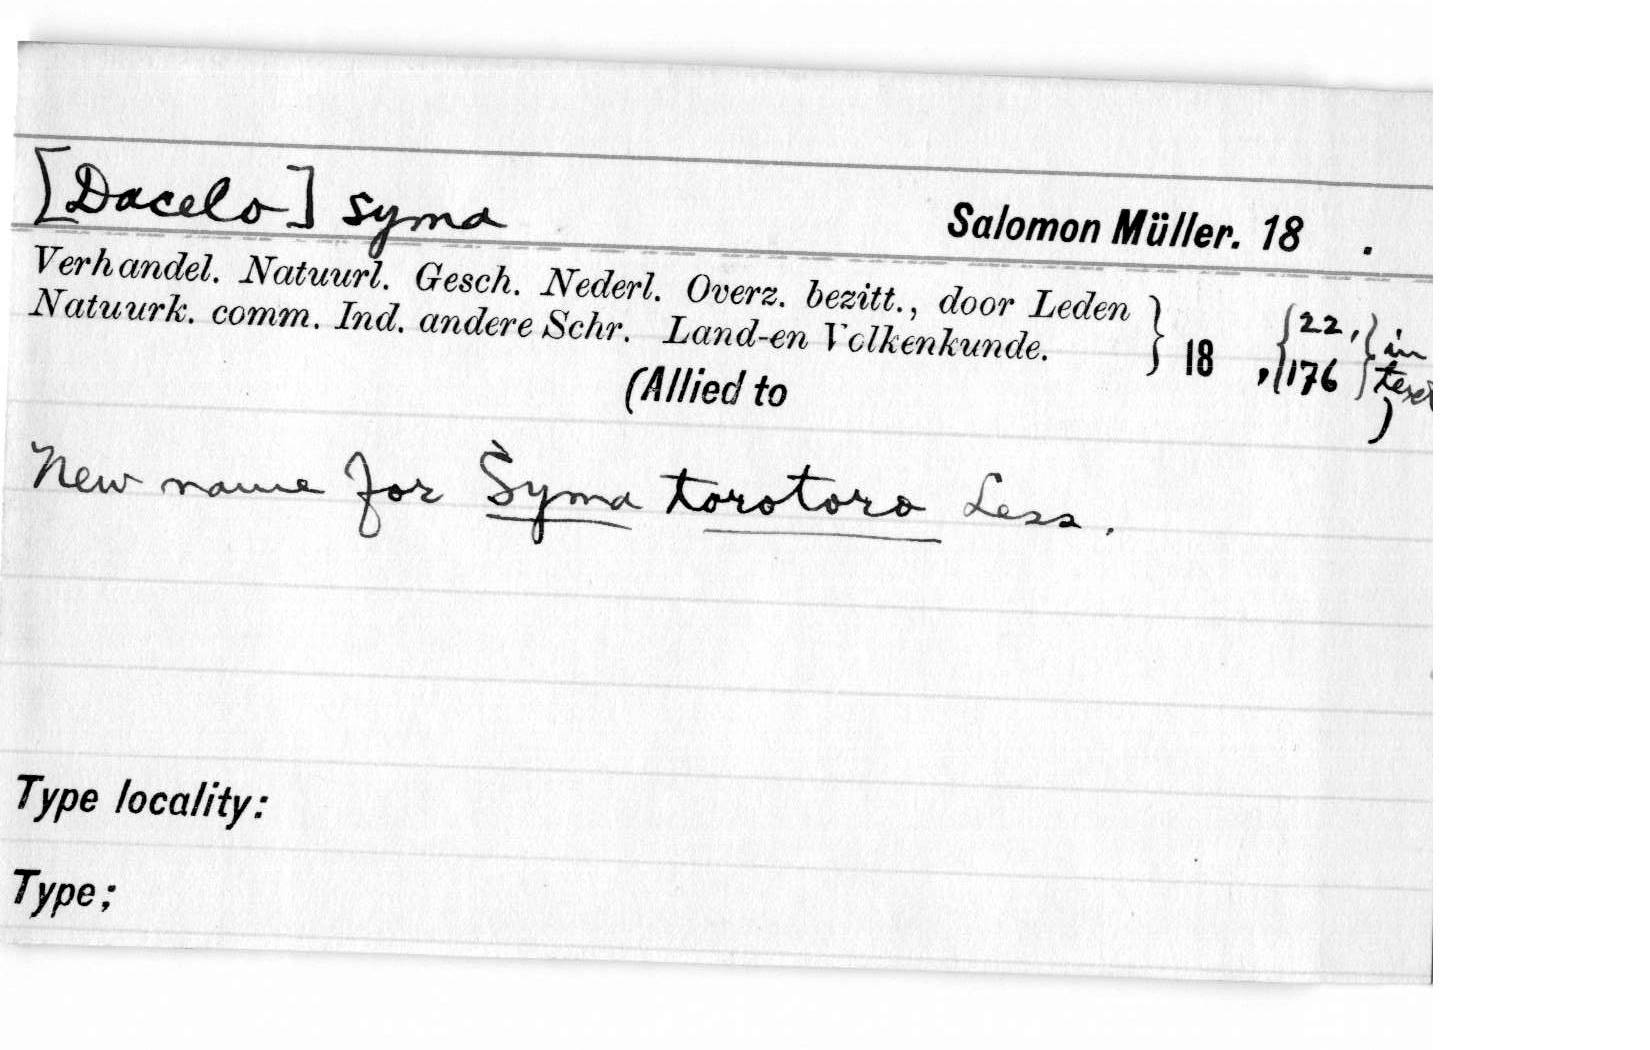 [Dacelo] syma Salomon Müller. 18 .
Verhandel. Natuurl. Gesch. Nederl. Overz. bezitt., door Leden } 18 , { 22, } in
Natuurk. comm. Ind. andere Schr. Land-en Volkenkunde. { 176 } text
(Allied to )
New name for Syma torotoro Less.
Type locality:
Type;